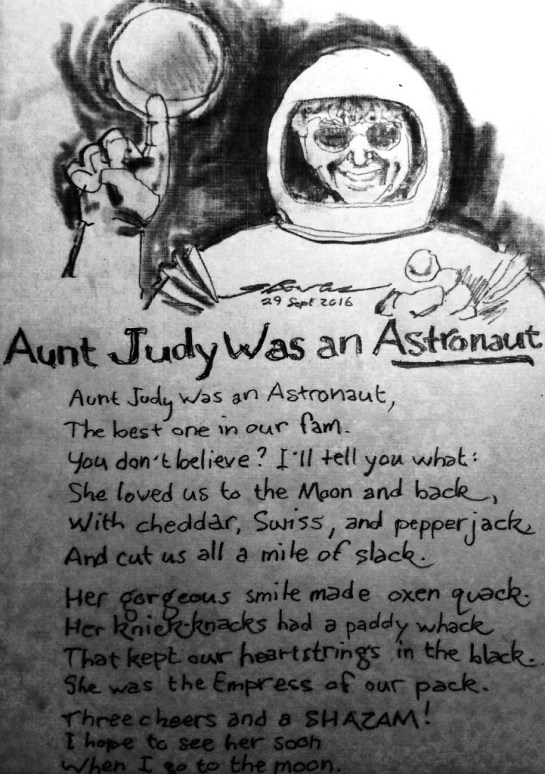 29 Sept 2016
Aunt Judy Was an Astronaut
Aunt Judy Was an Astronaut,
The best one in our fam.
You don't believe? I'll tell you what:
She loved us to the Moon and back,
With cheddar, Swiss, and pepperjack,
And cut us all a mile of slack.
Her gorgeous smile made oxen quack.
Her knick-knacks had a paddy whack
That kept our heartstrings in the black.
She was the Empress of our pack.
Three cheers and a SHAZAM!
I hope to see her soon
When I go to the moon.